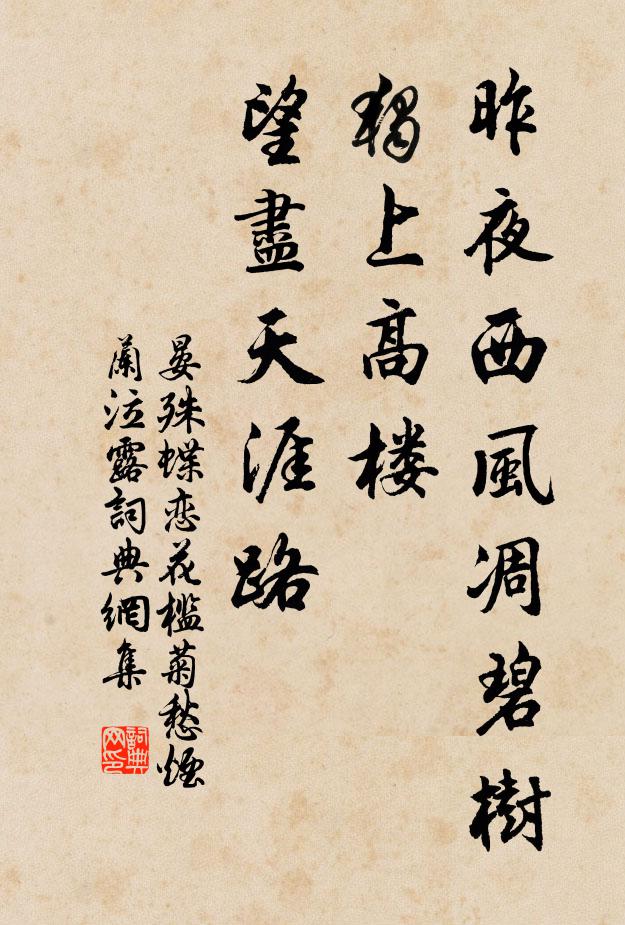 昨夜西風凋碧樹
獨上高楼
望盡天涯路
晏殊蝶恋花檻菊愁煙
蘭泣露詞典網集
詞典网印